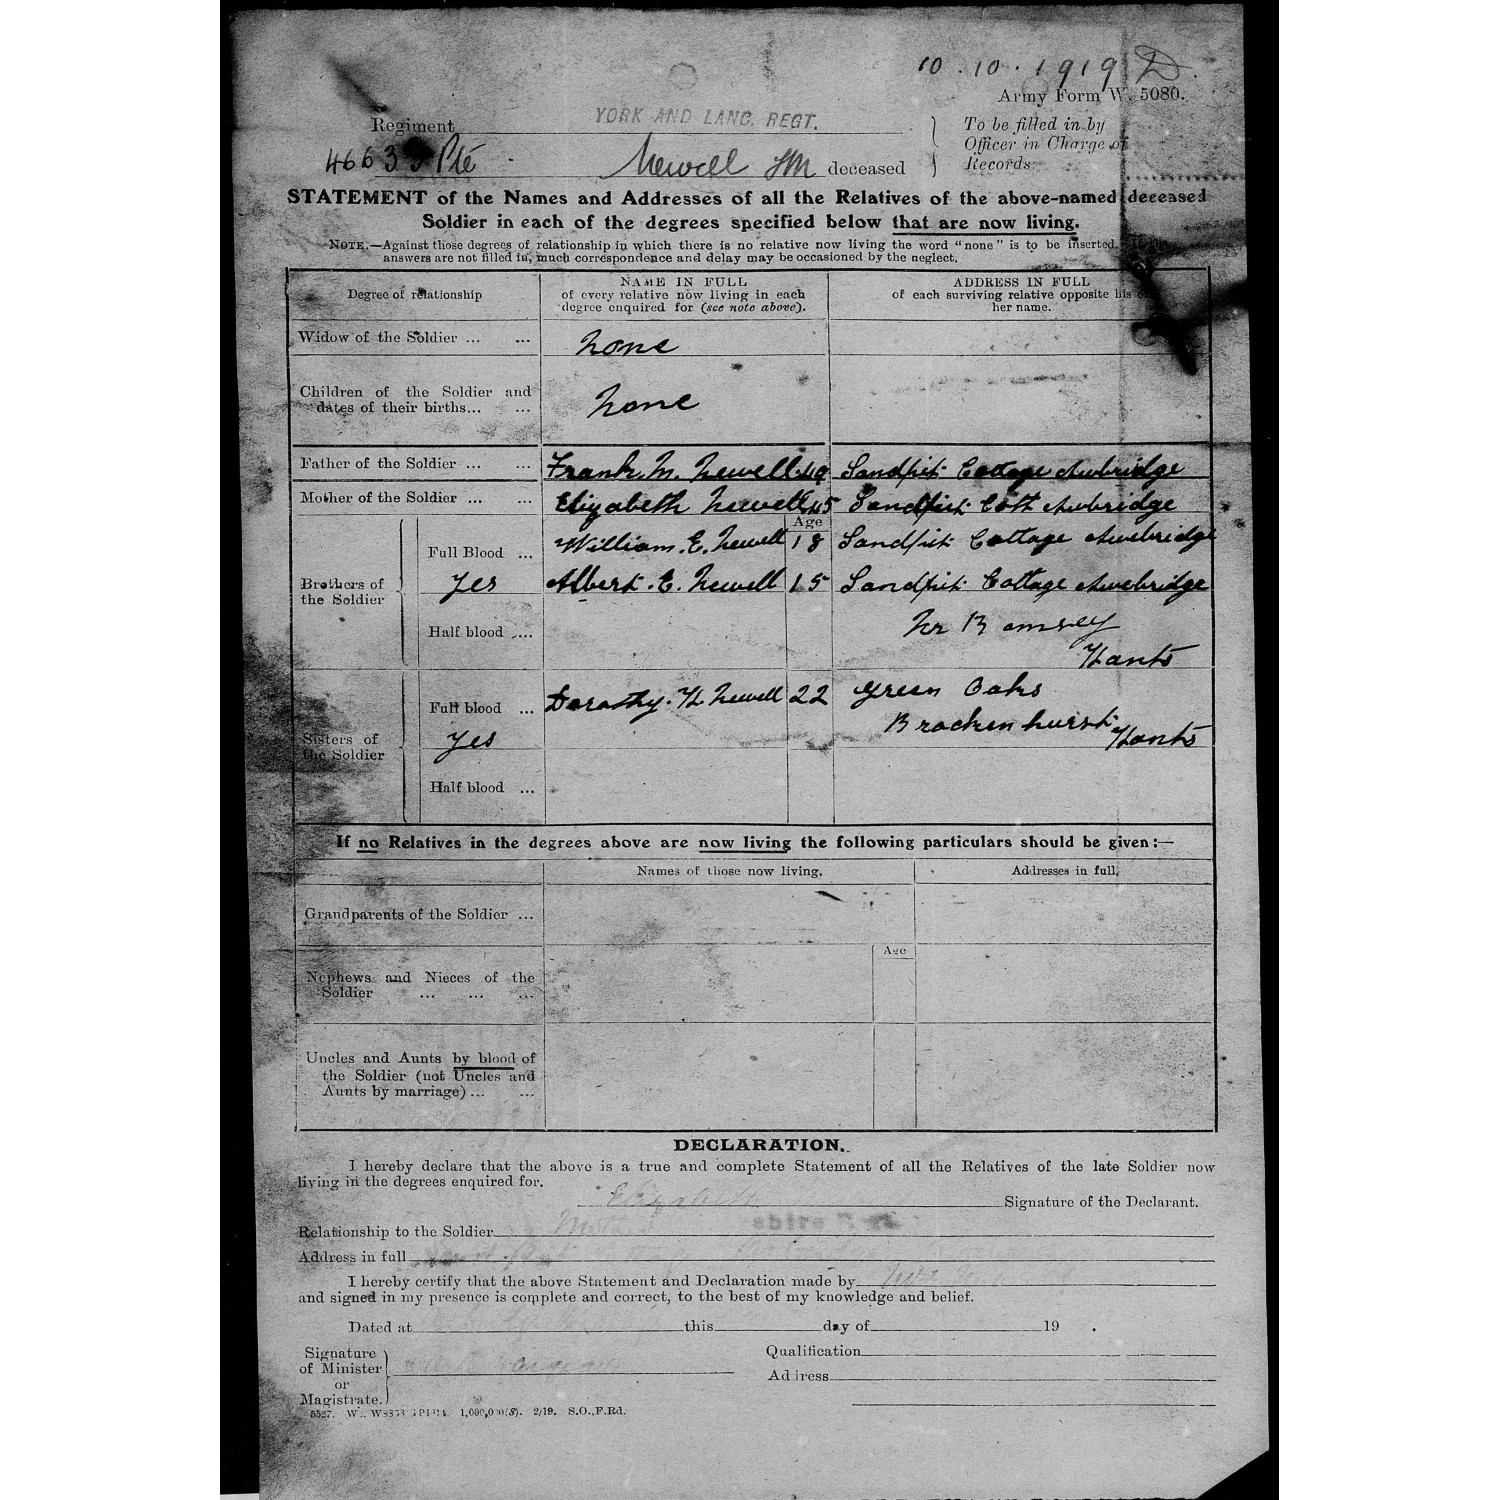 10.10.1919 D.
Army Form W. 5080.
Regiment YORK AND LANC. REGT.
To be filled in by
Officer in Charge of
Records.
Pte Newell deceased
STATEMENT of the Names and Addresses of all the Relatives of the above-named deceased
Soldier in each of the degrees specified below that are now living.
NOTE.—Against those degrees of relationship in which there is no relative now living the word "none" is to be inserted.
answers are not filled in, much correspondence and delay may be occasioned by the neglect.
Degree of relationship
NAME IN FULL
of every relative now living in each
degree enquired for (see note above).
ADDRESS IN FULL
of each surviving relative opposite his or
her name.
Widow of the Soldier ... ... None
Children of the Soldier and
dates of their births... ... None
Father of the Soldier ... ... Frank. M. Newell 49 Sandpit Cottage Awbridge
Mother of the Soldier ... ... Elizabeth Newell 45 Sandpit Cott Awbridge
Age
Brothers of
the Soldier
Full Blood ... William. E. Newell 18 Sandpit Cottage Awebridge
Yes Albert. E. Newell 15 Sandpit Cottage Awebridge
Half blood ... Nr Romsey
Hants
Sisters of
the Soldier
Full blood ... Dorothy. H. Newell 22 Green Oaks
Yes Brockenhurst Hants
Half blood ...
If no Relatives in the degrees above are now living the following particulars should be given:—
Names of those now living. Addresses in full.
Grandparents of the Soldier ...
Age
Nephews and Nieces of the
Soldier ... ... ...
Uncles and Aunts by blood of
the Soldier (not Uncles and
Aunts by marriage) ... ...
DECLARATION.
I hereby declare that the above is a true and complete Statement of all the Relatives of the late Soldier now
living in the degrees enquired for.
Elizabeth Signature of the Declarant.
Relationship to the Soldier Mother
Address in full
I hereby certify that the above Statement and Declaration made by
and signed in my presence is complete and correct, to the best of my knowledge and belief.
Dated at this day of 19 .
Signature
of Minister
or
Magistrate.
Qualification
Address
5527. 1,000,000(S). 2/19. S.O.,F.Rd.